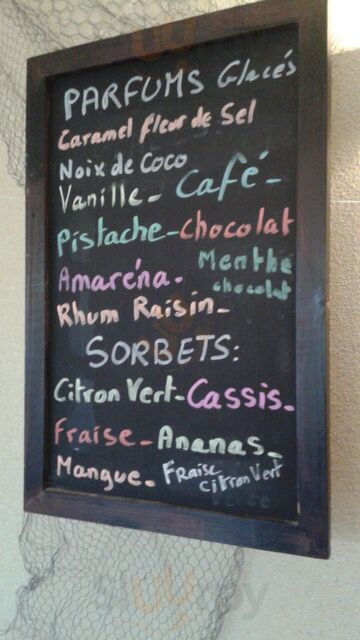 PARFUMS Glacés
Caramel fleur de Sel
Noix de Coco
Vanille - Café -
Pistache - Chocolat
Amaréna. Menthe chocolat
Rhum Raisin -
SORBETS:
Citron Vert - Cassis.
Fraise - Ananas -
Mangue. Fraise citron Vert